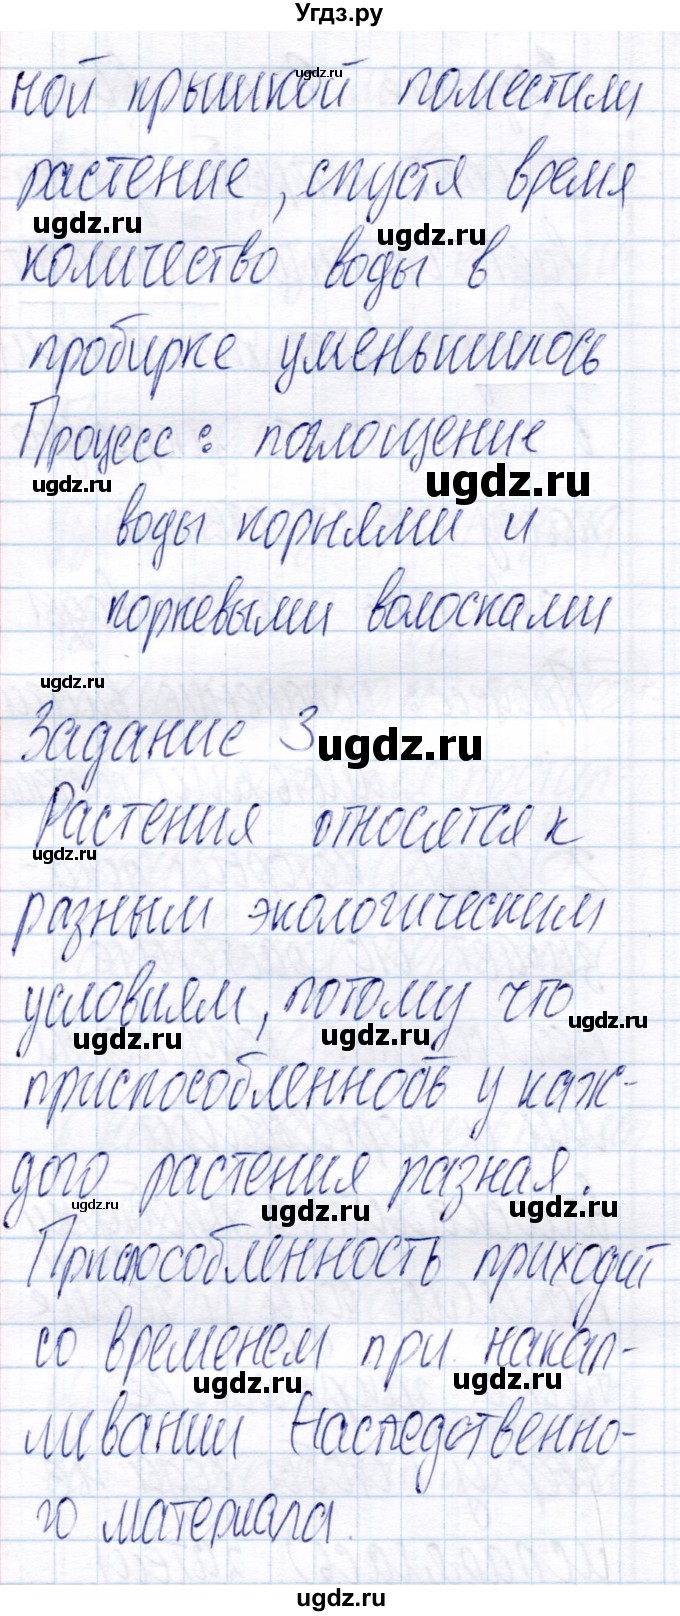 Угдз.ру
ugdz.ru
ной крышкой поместили
растение, спустя время
ugdz.ru
ugdz.ru
количество воды в
пробирке уменьшилось
Процесс: поглощение
ugdz.ru
ugdz.ru
воды корнями и
корневыми волосками
ugdz.ru
Задание 3
ugdz.ru
Растения относятся к
ugdz.ru
разным экологическим
условиям, потому что
ugdz.ru
ugdz.ru
ugdz.ru
приспособленность у каж-
дого растения разная.
ugdz.ru
ugdz.ru
ugdz.ru
Приспособленность приходит
со временем при накап-
ugdz.ru
ugdz.ru
ливании наследственно-
го материала.
ugdz.ru